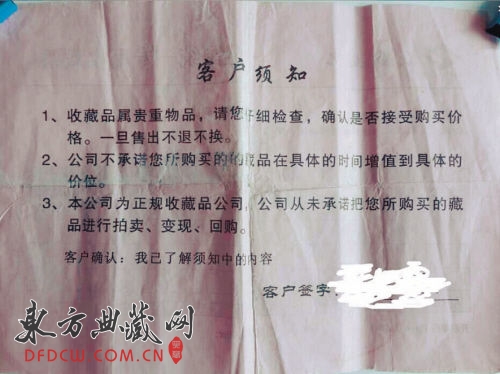 客户须知
1、收藏品属贵重物品，请您仔细检查，确认是否接受购买价
格。一旦售出不退不换。
2、公司不承诺您所购买的藏品在具体的时间增值到具体的
价位。
3、本公司为正规收藏品公司，公司从未承诺把您所购买的藏
品进行拍卖、变现、回购。
客户确认：我已了解须知中的内容
客户签字：
东方典藏网
DFDCW.COM.CN